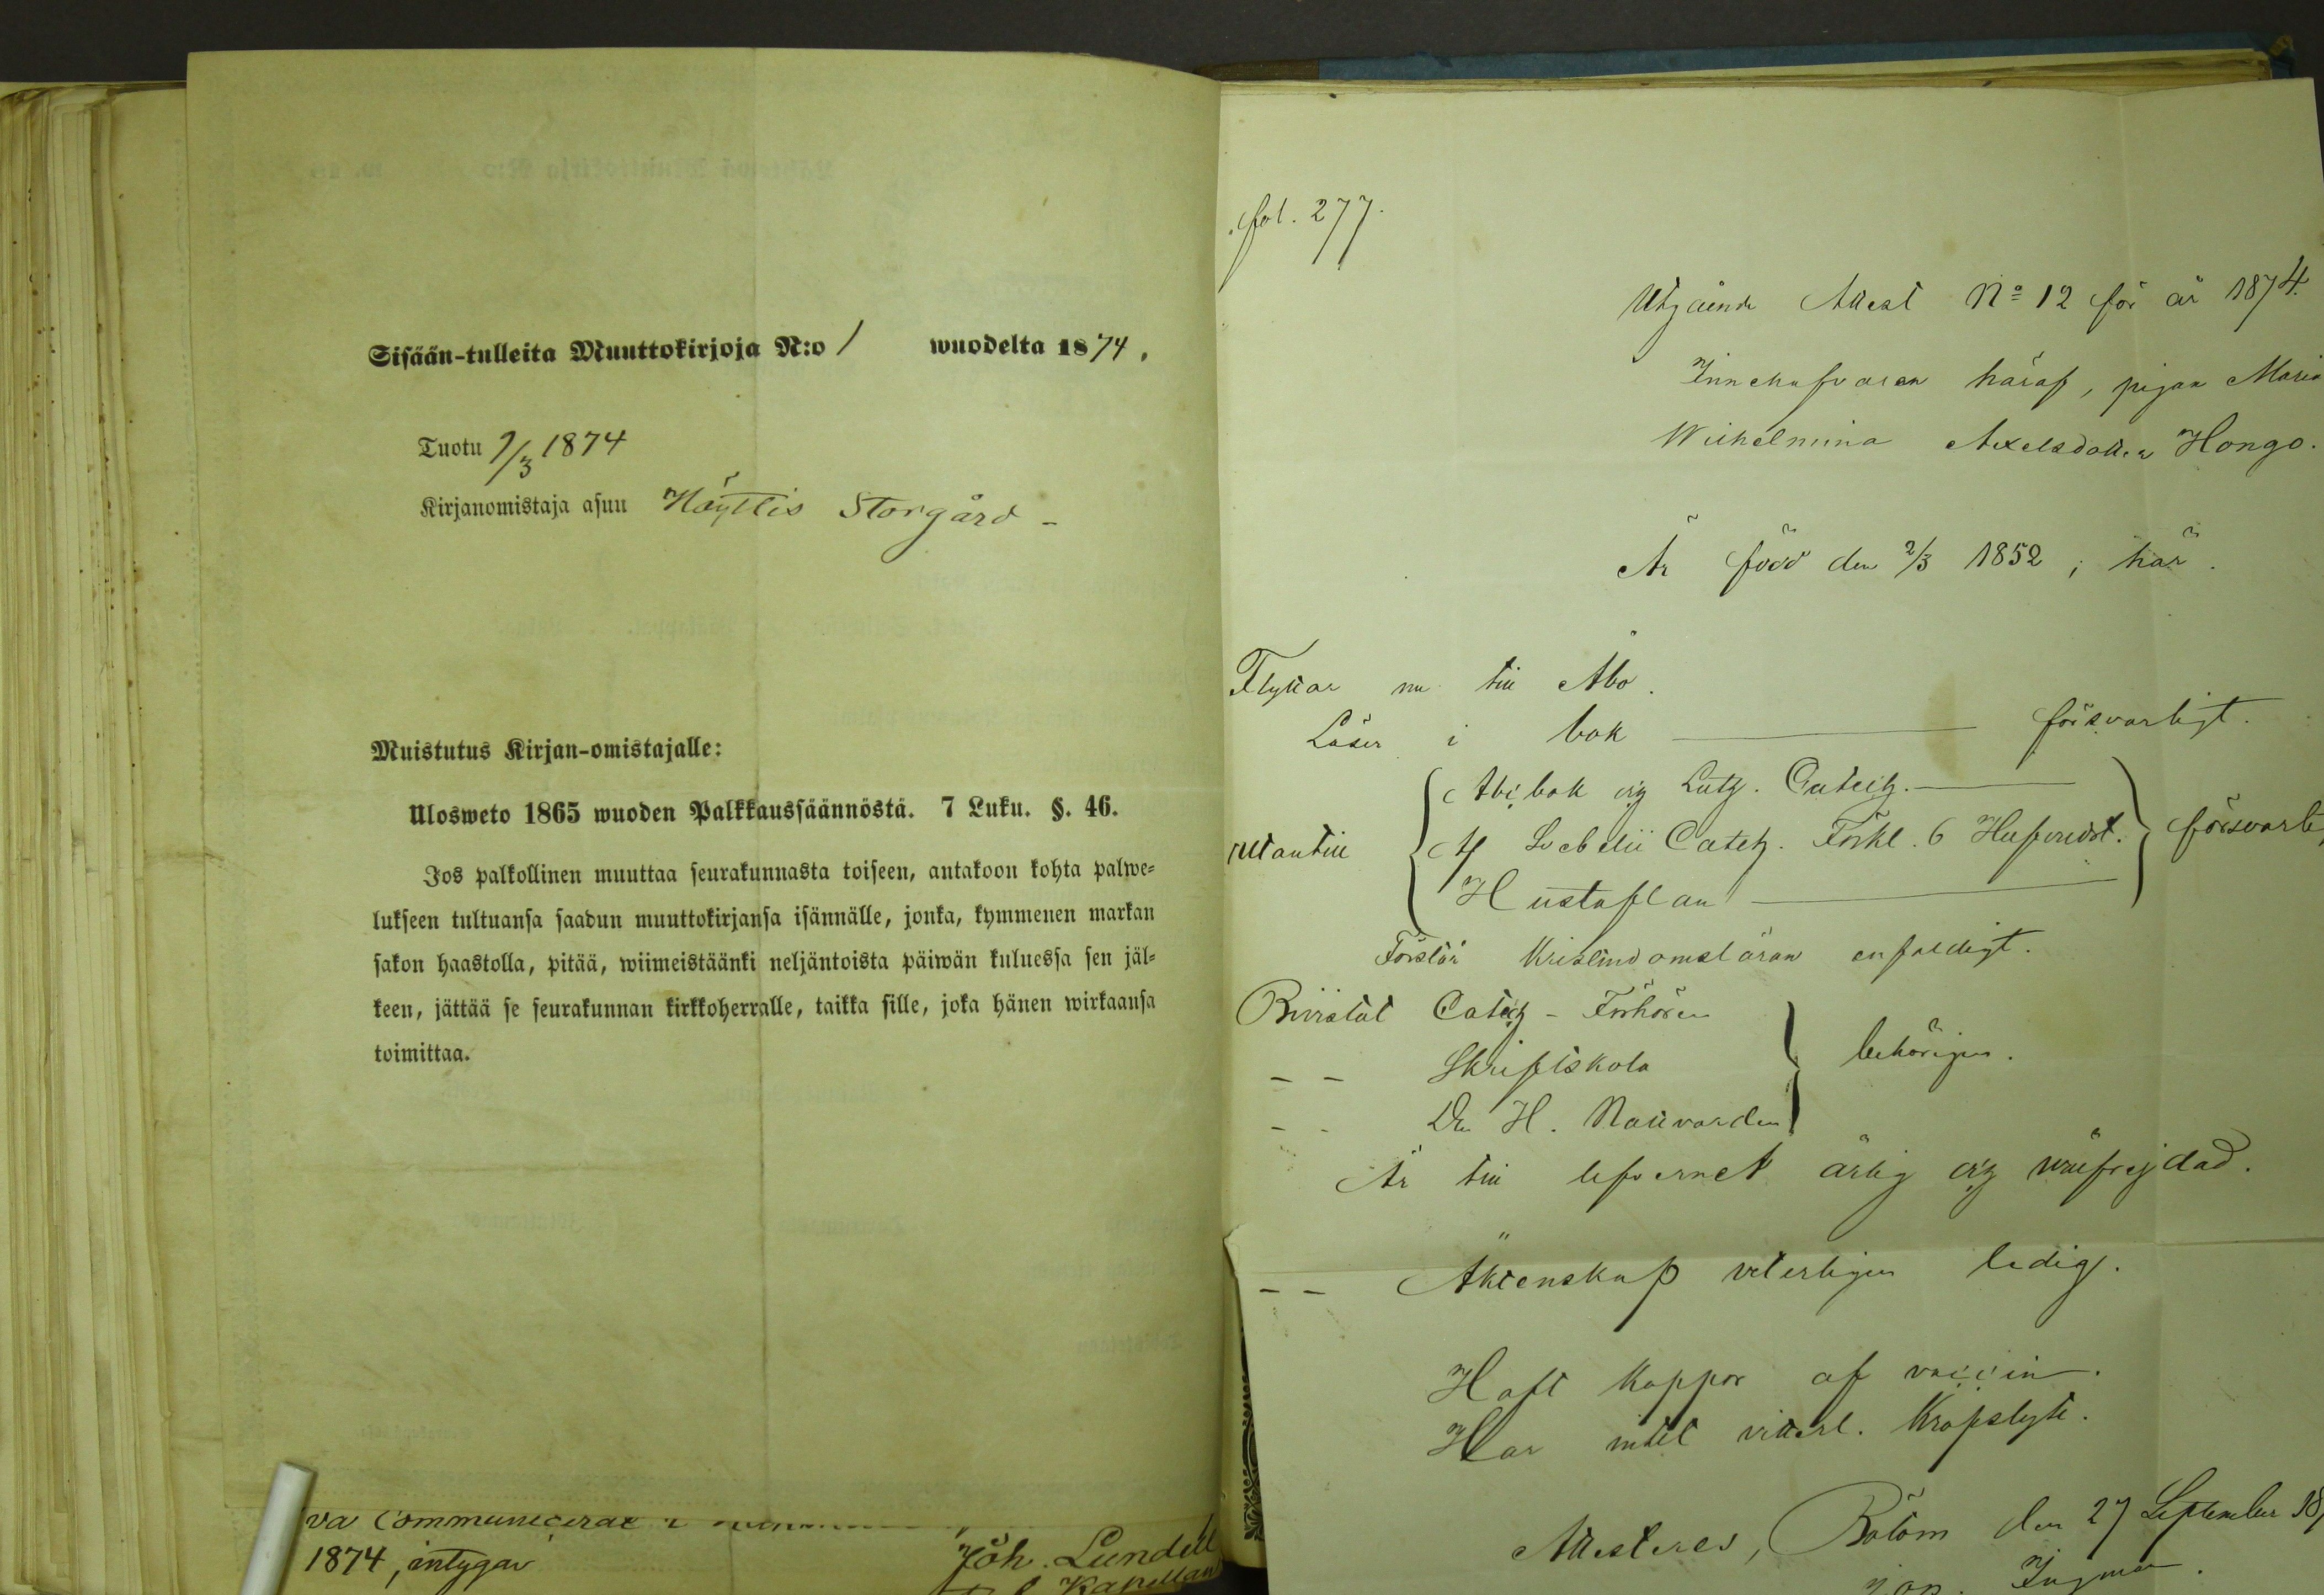 Sisään-tulleita Muuttokirjoja N:o 1 wuodelta 1874.
Tuotu 9/3 1874
Kirjanomistaja asuu Höyttis Storgård -
Muistutus Kirjan-omistajalle:
Ulosweto 1865 wuoden Palkkaussäännöstä. 7 Luku. §. 46.
Jos palkollinen muuttaa seurakunnasta toiseen, antakoon kohta palwe-
lukseen tultuansa saadun muuttokirjansa isännälle, jonka, kymmenen markan
sakon haastolla, pitää, wiimeistäänki neljäntoista päiwän kuluessa sen jäl-
keen, jättää se seurakunnan kirkkoherralle, taikka sille, joka hänen wirkaansa
toimittaa.
va Communicerat
1874, intygar
Joh. Lundell
Kapellan
fol. 277.
Utgående Attest No 12 för år 1874.
Innehafvaren häraf, pigan Maria
Wilhelmina Axelsdotter Hongo.
Är född den 2/3 1852, här.
Flyttar nu till Åbo.
Läser i bok försvarligt.
Abc bok och Luth. Catech.
Utantill Af Svebelii Catech. Förkl. 6 Hufvudst. försvarl
Hustaflan
Förstår Kristendomsläran enfaldigt.
Bivistat Catech - Förhören
- - Skriftskola behörigen.
- - Den H. Nattvarden
Är till lefvernet ärlig och wälfrejdad.
- - Äktenskap veterligen ledig.
Haft Koppor af vaccin.
Har intet vitterl. Kropslyte.
Attesteras, Rötöm den 27 September 18
Ingman.